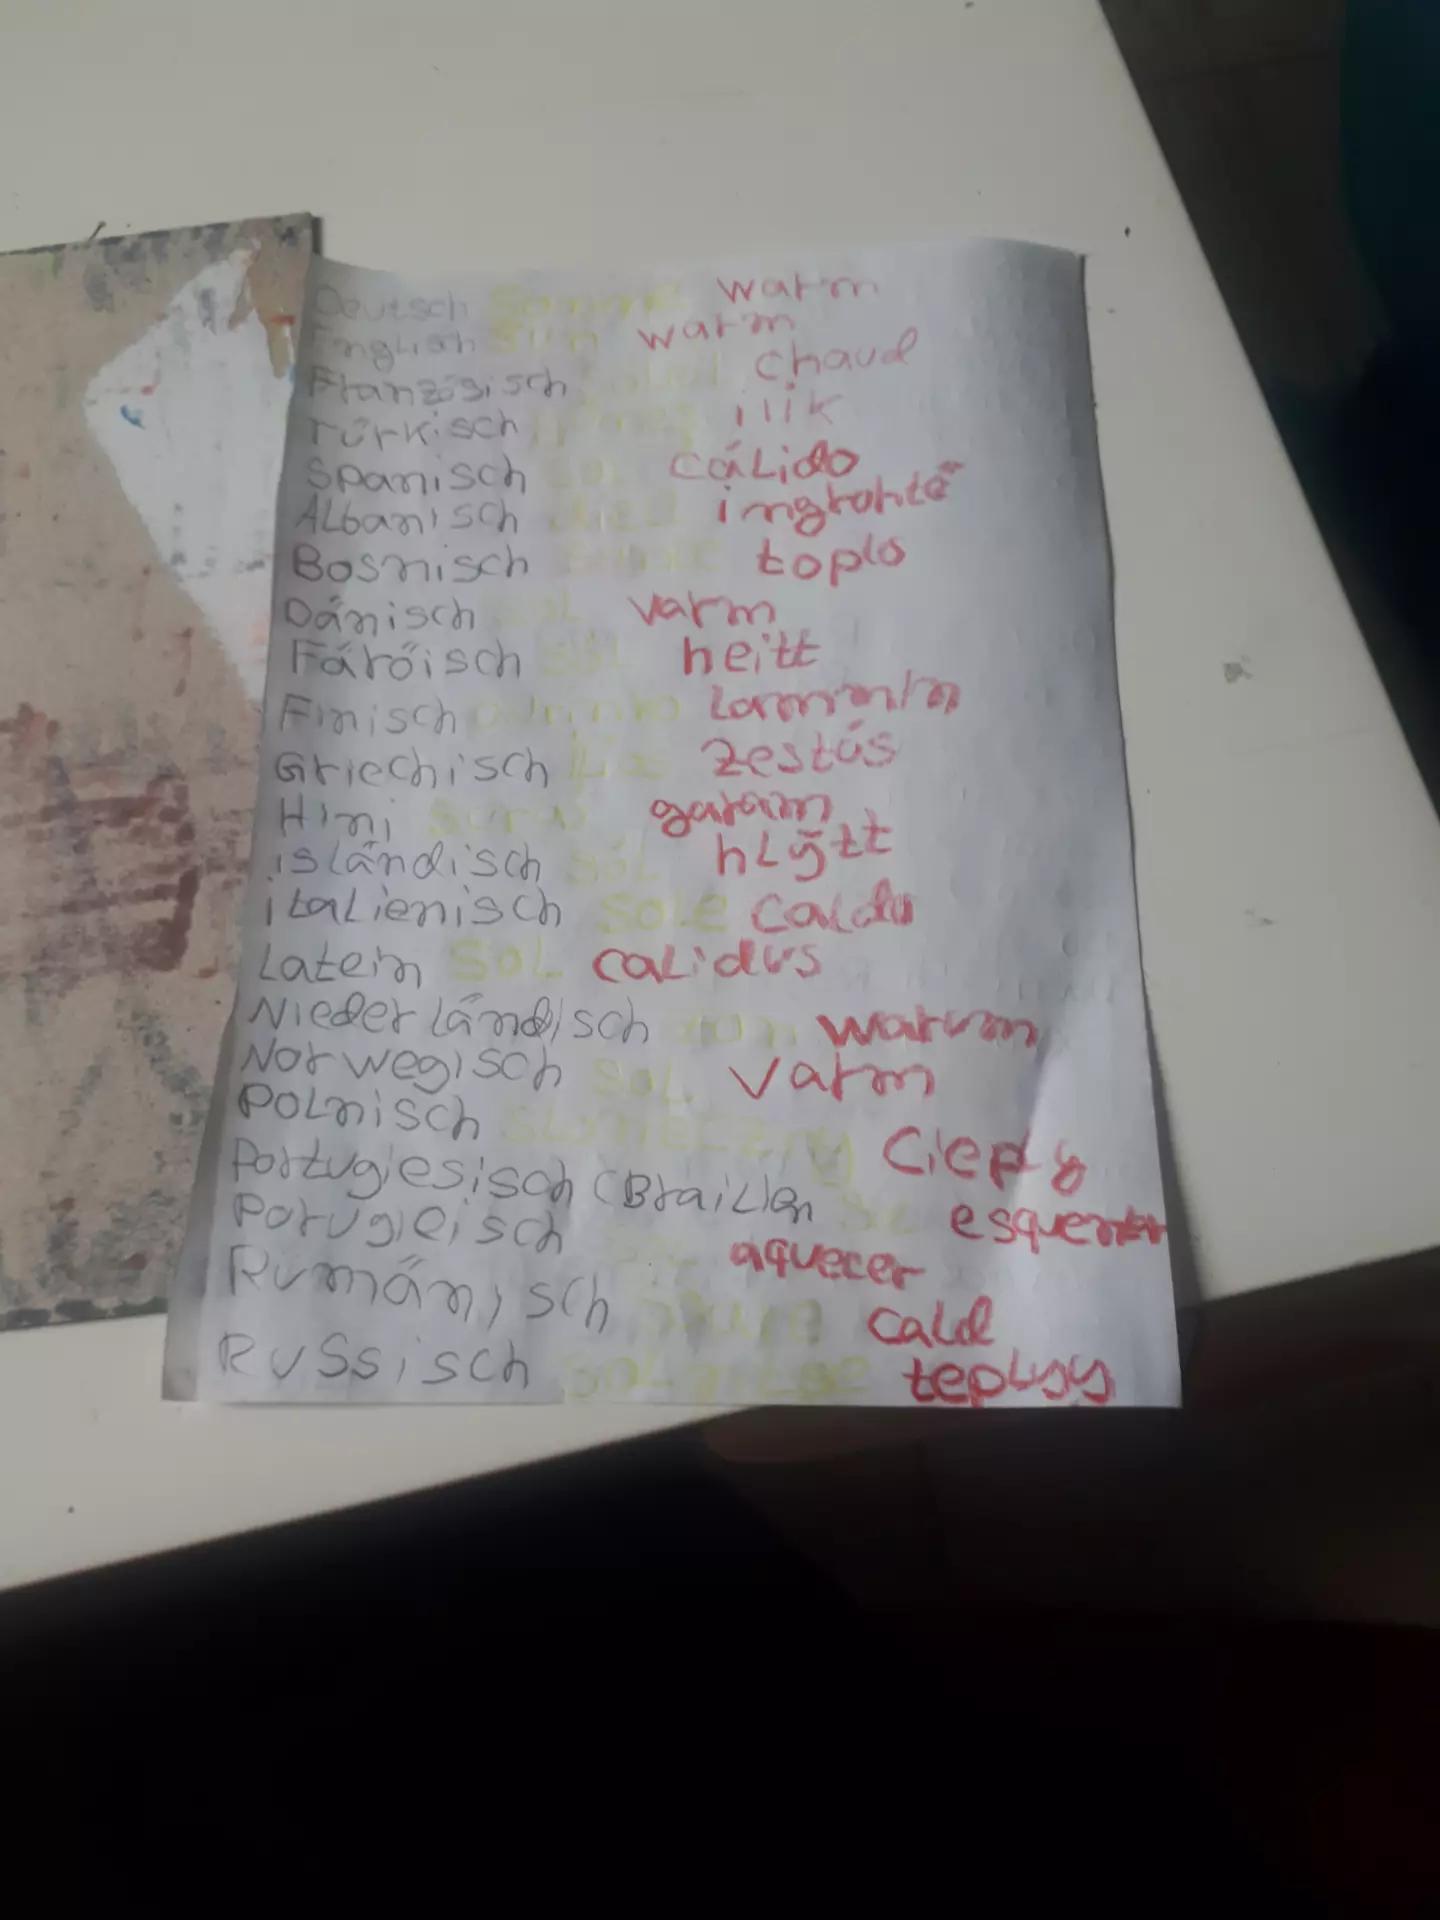 Deutsch Sonne warm
English Sun warm
Französisch Soleil chaud
Türkisch ilik
Spanisch Sol cálido
Albanisch diell ingrohtë
Bosnisch toplo
Dänisch SOL varm
Färöisch sól heitt
Finisch Lammin
Griechisch ilios zestós
Hini garam
isländisch sól hLýtt
italienisch SoLE caldo
Latein SoL caLidus
Niederländisch zon warum
Norwegisch SoL varm
Polnisch SLoneczny Ciepły
Portugiesisch (BraiLien
Porugieisch aquecer
Rumänisch cald
RuSSisch tepLyy